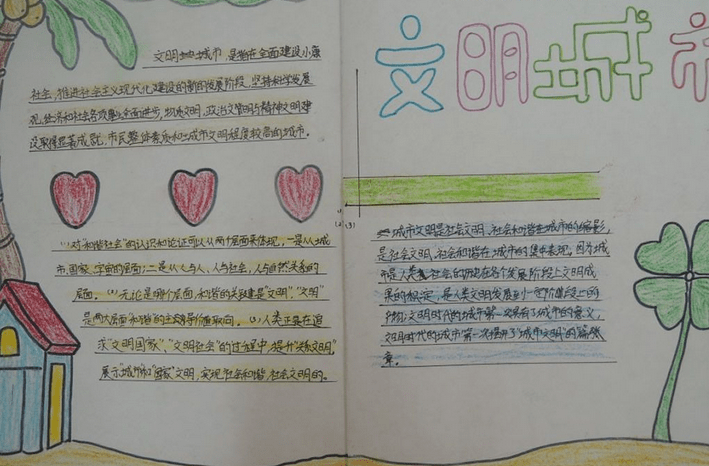 文明城市
文明城市，是指在全面建设小康
社会，推进社会主义现代化建设的新的发展阶段，坚持科学发展
观，经济和社会各项事业全面进步，物质文明，政治文明与精神文明建
设取得显著成就，市民整体素质和城市文明程度较高的城市。
(1)对"和谐社会"的认识和论证可以从两个层面来体现，一是从城
市、国家、宇宙的层面；二是从人与人、人与社会，人与自然关系的
层面。 无论是哪个层面，和谐的关键是"文明"，"文明"
是两大层面和谐的主导价值取向。 人类正要在追
求"文明国家"、"文明社会"的过程中，提升
展示城市和"国家"文明，实现社会和谐，社会文明的。
城市文明是社会文明、社会和谐在城市的缩影，
是社会文明、社会和谐在城市的集中表现，因为城
市是人类社会的 在各个发展阶段上文明成
果的标定，是人类文明发展到一定阶段上的
产物；文明时代的城市第一次具有了城市的意义，
文明时代的城市第一次揭开了"城市文明"的篇
章。